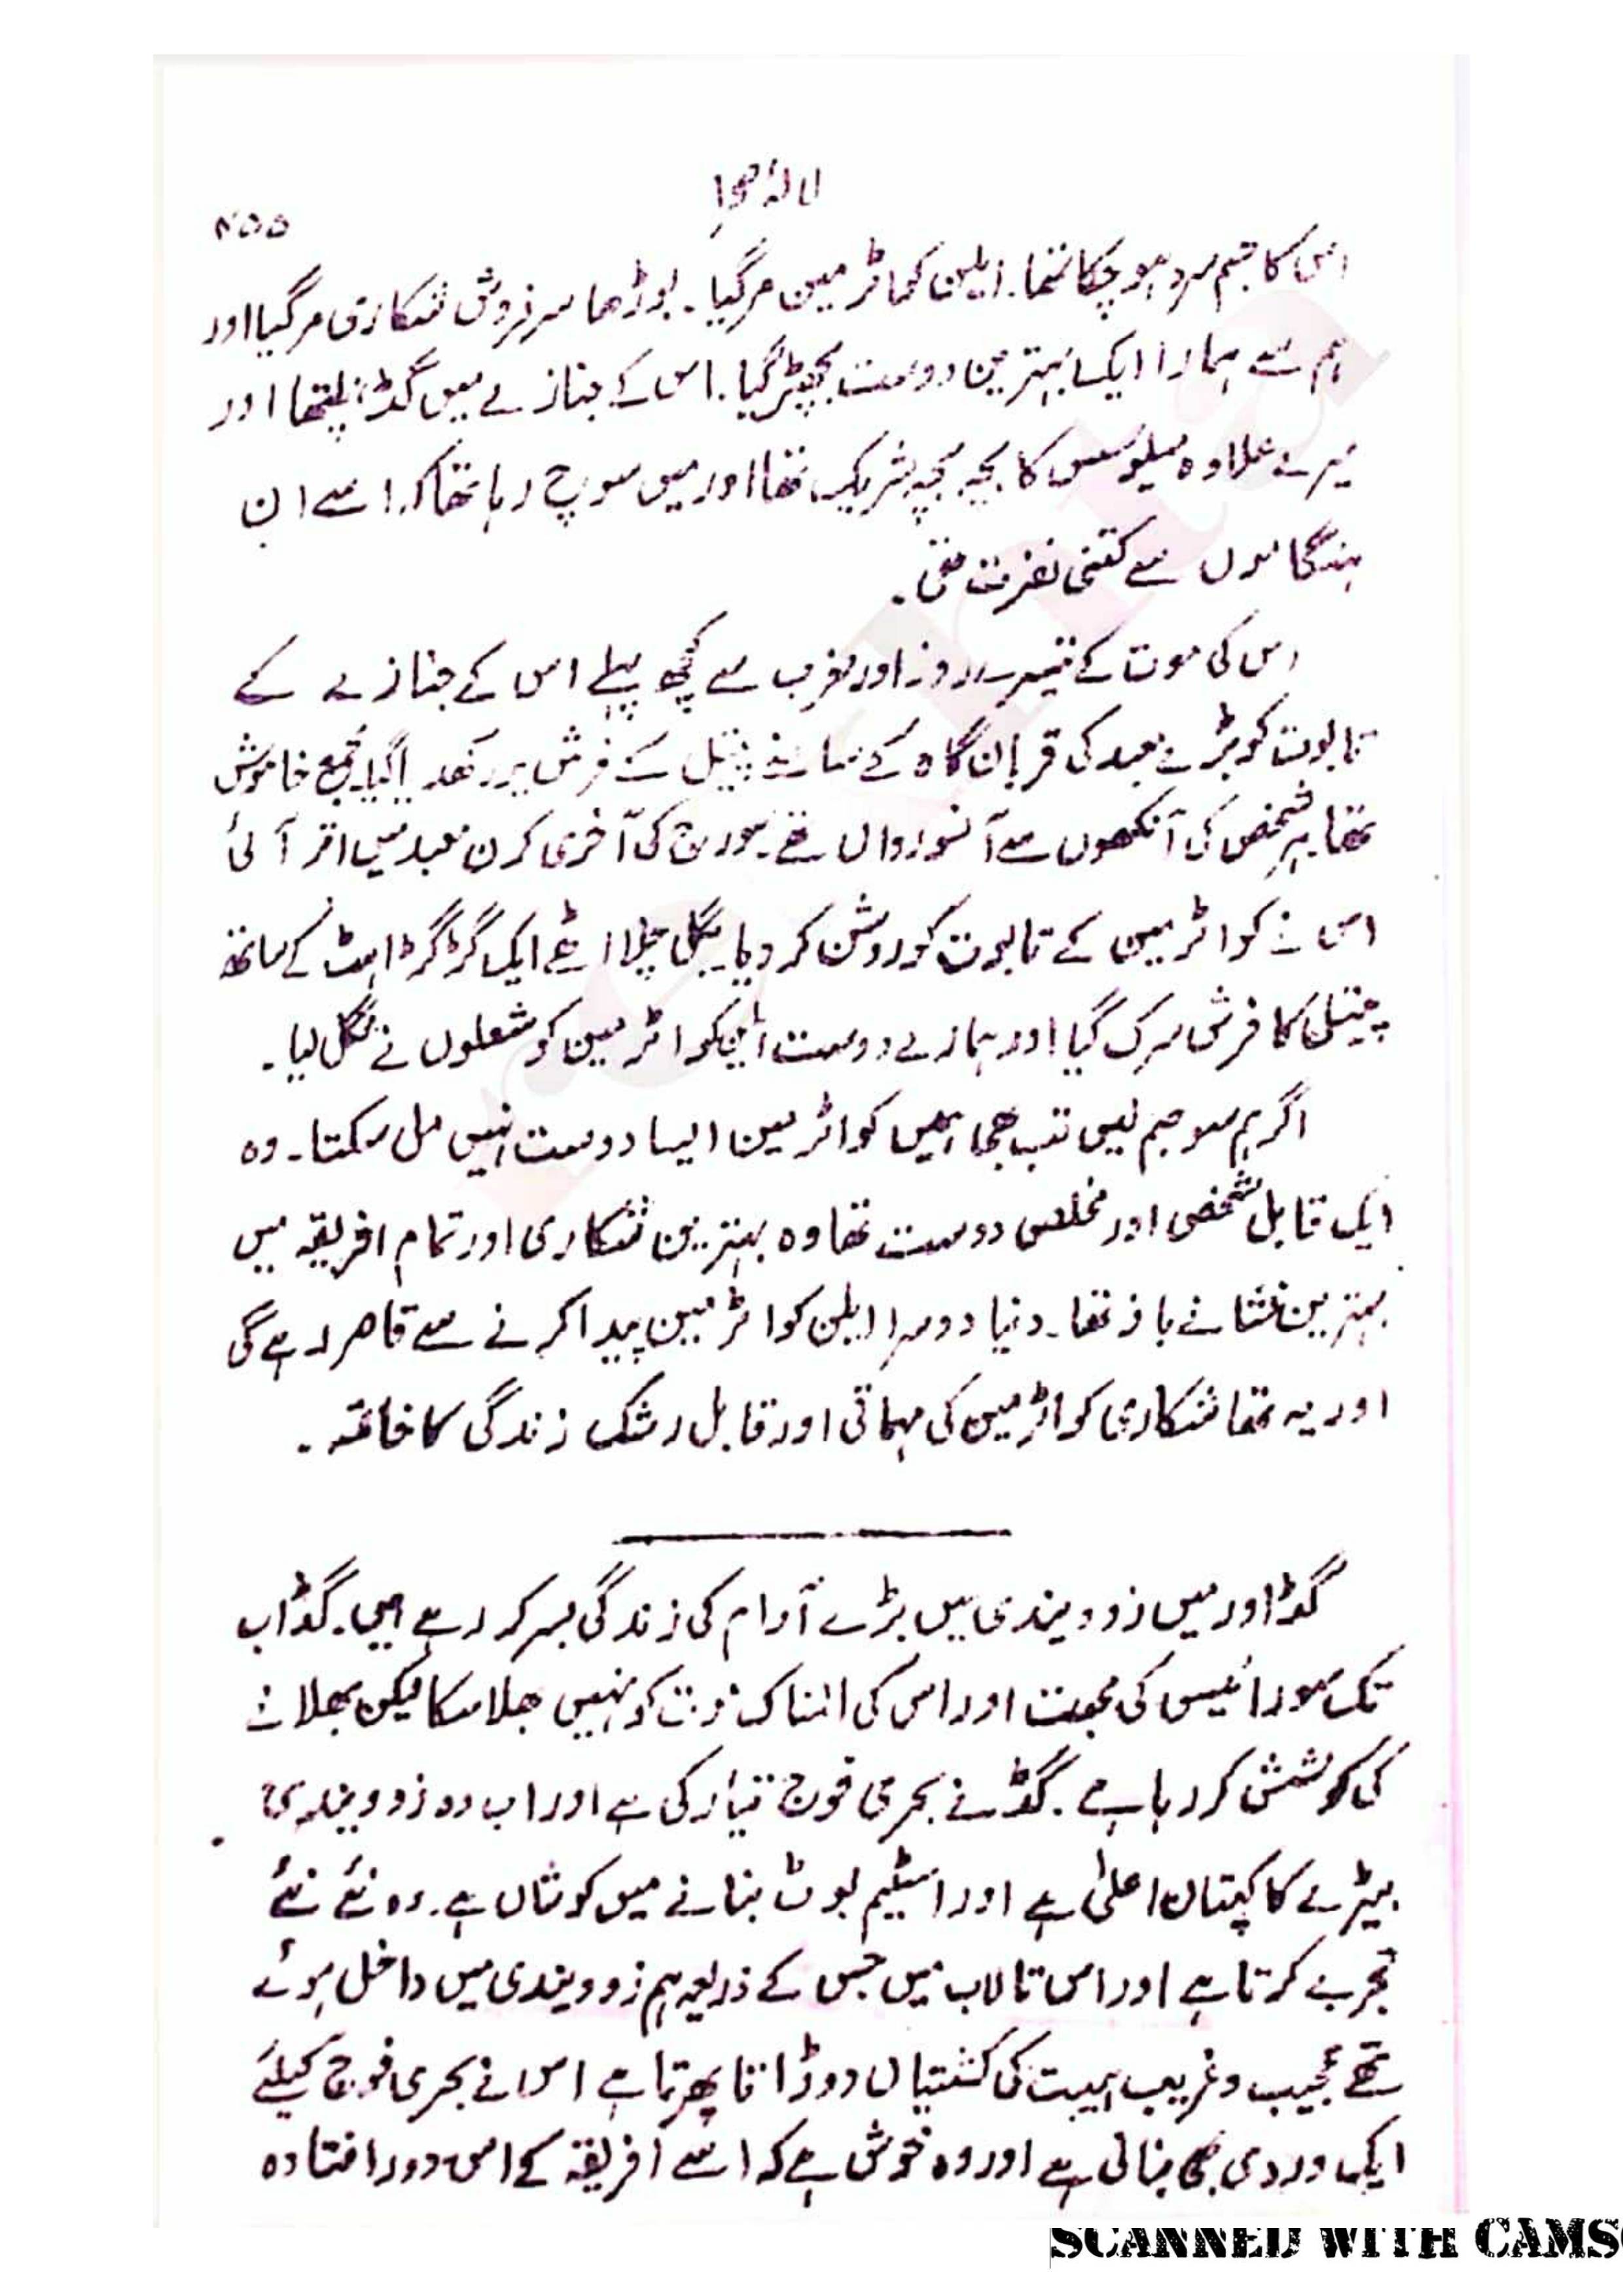 لالۂ صحرا
۴۵۵
اس کا جسم سرد ہو چکا تھا۔ ایلن کواٹرمین مرگیا۔ بوڑھا سرفروش شکاری مرگیا اور
ہم سے ہمارا ایک بہترین دوست بچھڑ گیا۔ اس کے جنازے میں گڈ، نلپتھا اور
میرے علاوہ میلوسس کا بچہ بچہ شریک تھا اور میں سوچ رہا تھا کہ اسے ان
ہنگاموں سے کتنی نفرت تھی۔
اس کی موت کے تیسرے روز اور مغرب سے کچھ پہلے اس کے جنازے کے
تابوت کو بڑے معبد کی قربان گاہ کے سامنے پیتل کے فرش پر رکھدیا گیا۔ مجمع خاموش
تھا ہر شخص کی آنکھوں سے آنسو رواں تھے۔ سورج کی آخری کرن معبد میں اتر آئی
اس نے کواٹرمین کے تابوت کو روشن کر دیا۔ بگل چلا اٹھے ایک گڑگڑاہٹ کے ساتھ
پیتل کا فرش سرک گیا اور ہمارے دوست ایلن کواٹرمین کو شعلوں نے نگل لیا۔
اگر ہم سو جنم لیں تب بھی ہمیں کواٹرمین ایسا دوست نہیں مل سکتا۔ وہ
ایک قابل شخص اور مخلص دوست تھا وہ بہترین شکاری اور تمام افریقہ میں
بہترین نشانے باز تھا۔ دنیا دوسرا ایلن کواٹرمین پیدا کرنے سے قاصر رہے گی
اور یہ تھا شکاری کواٹرمین کی مہماتی اور قابل رشک زندگی کا خاتمہ۔
گڈ اور میں زوویندی میں بڑے آرام کی زندگی بسر کر رہے ہیں۔ گڈ اب
تک سورائیس کی محبت اور اس کی المناک موت کو نہیں بھلا سکا لیکن بھلانے
کی کوشش کر رہا ہے۔ گڈ نے بحری فوج تیار کی ہے اور اب وہ زوویندی
بیڑے کا کپتان اعلیٰ ہے اور اسٹیم بوٹ بنانے میں کوشاں ہے۔ وہ نئے نئے
تجربے کرتا ہے اور اس تالاب میں جس کے ذریعہ ہم زوویندی میں داخل ہوئے
تھے عجیب و غریب ہیبت کی کشتیاں دوڑاتا پھرتا ہے اس نے بحری فوج کیلئے
ایک وردی بھی بنائی ہے اور وہ خوش ہے کہ اسے افریقہ کے اس دور افتادہ
SCANNED WITH CAMS